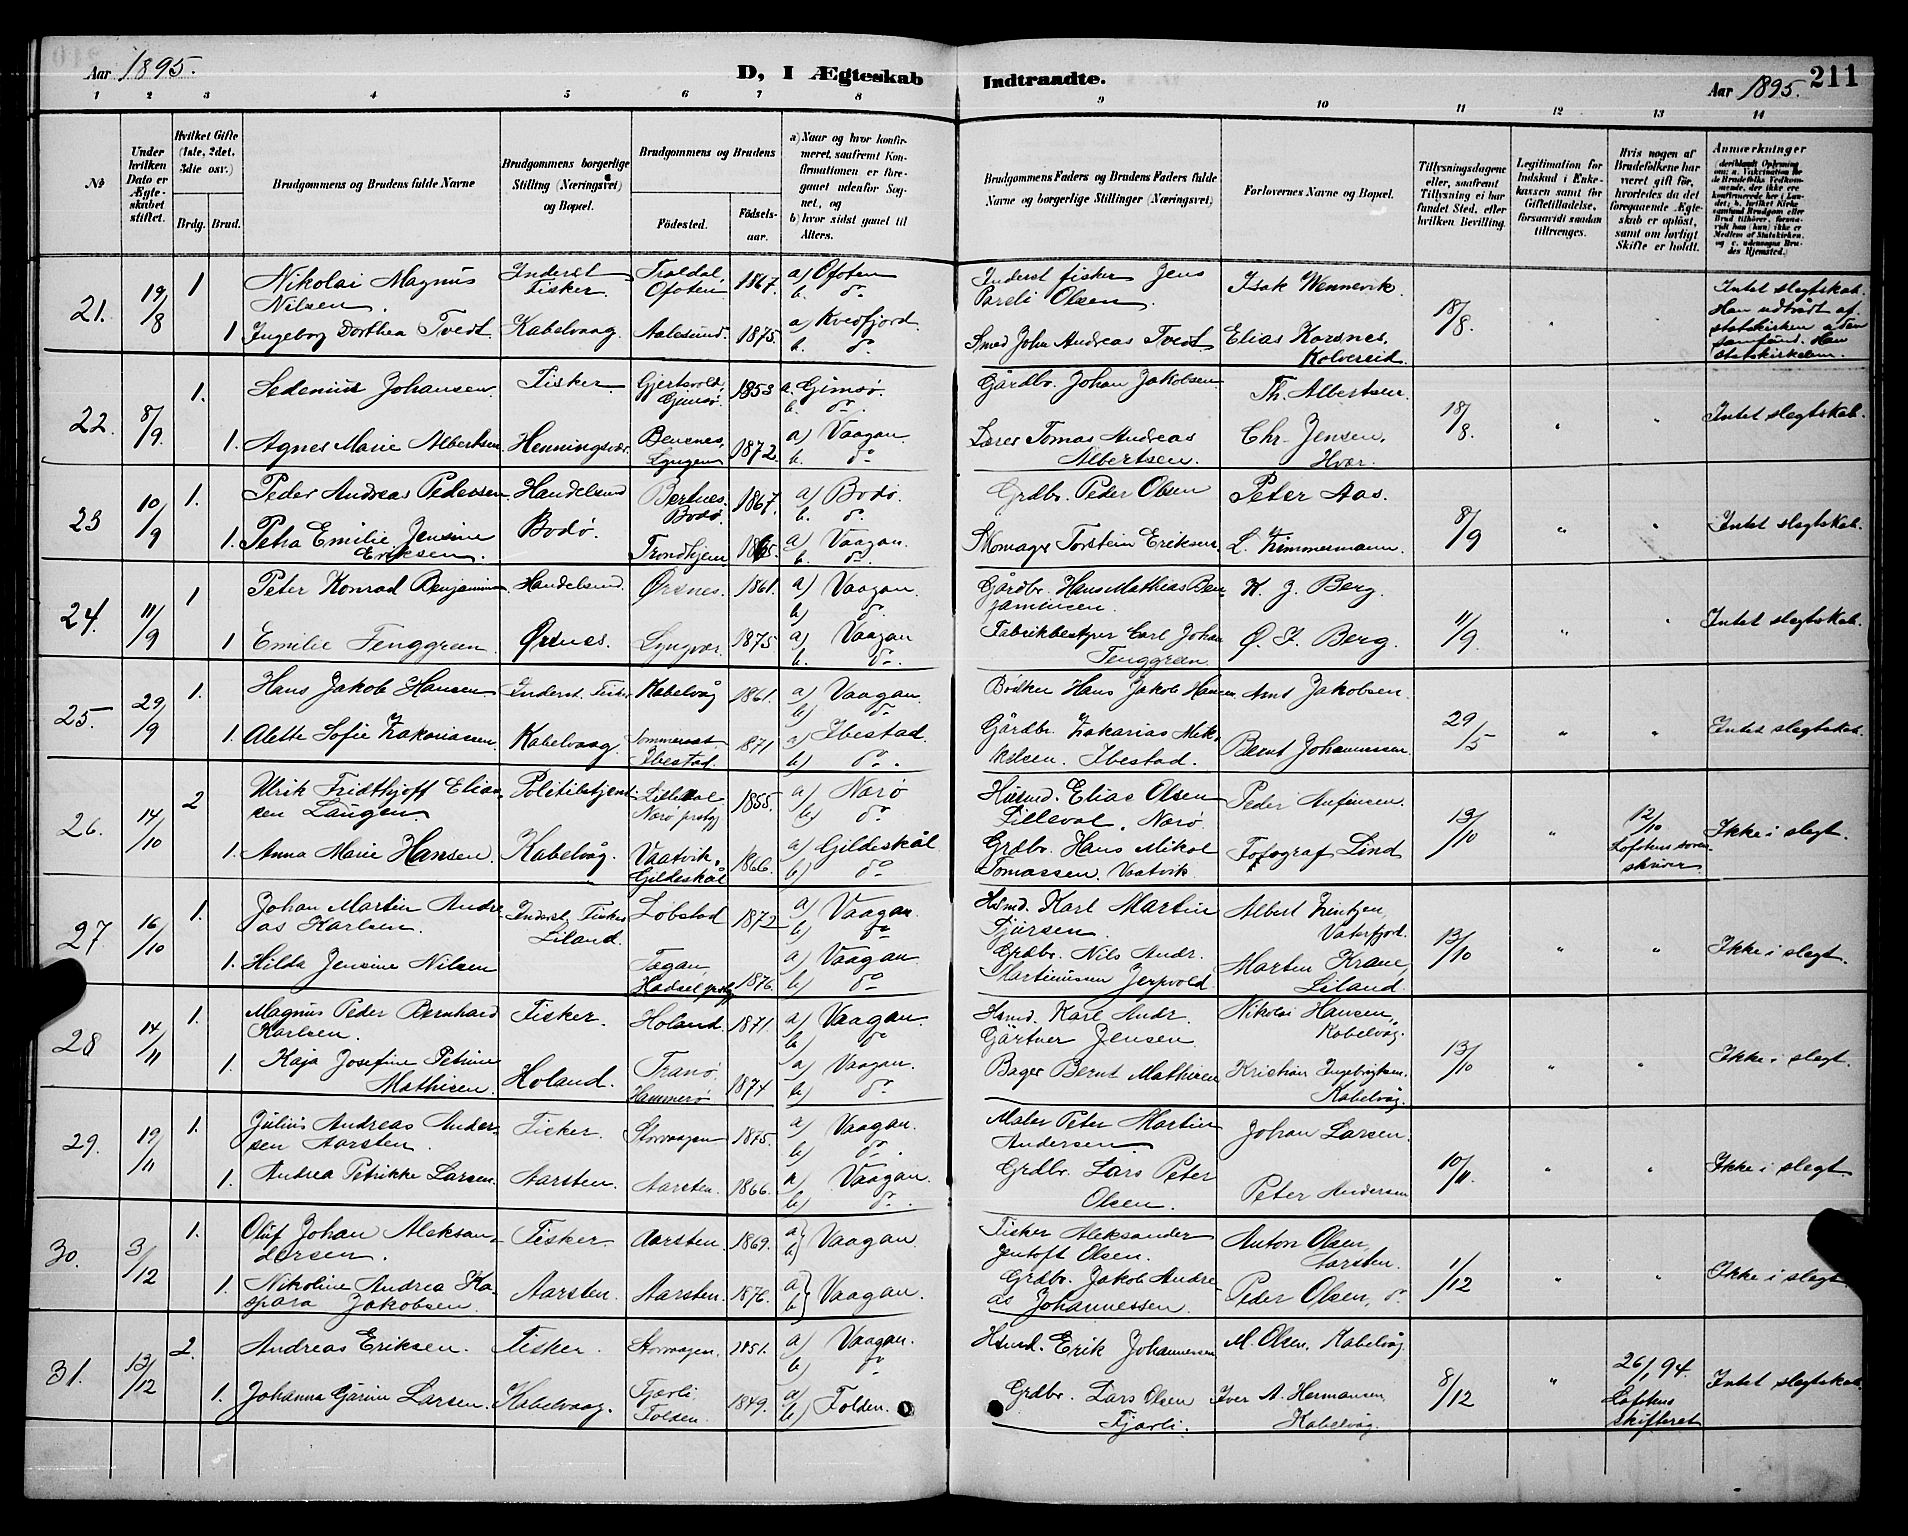 Aar 1895.
D, I Ægteskab Indtraadte.
Aar 1895.
211
1 2 3 4 5 6 7 8 9 10 11 12 13 14
№
Under hvilken Dato er Ægteskabet stiftet.
Hvilket Gifte (1ste, 2det, 3die osv.)
Brdg. Brud.
Brudgommens og Brudens fulde Navne
Brudgommens borgerlige Stilling (Næringsvei) og Bopæl.
Brudgommens og Brudens
Fødested.
Fødselsaar.
a) Naar og hvor konfirmeret, saafremt Konfirmationen er foregaaet udenfor Sognet, og
b) hvor sidst gaaet til Alters.
Brudgommens Faders og Brudens Faders fulde Navne og borgerlige Stillinger (Næringsvei)
Forlovernes Navne og Bopæl.
Tillysningsdagene eller, saafremt Tillysning ei har fundet Sted, efter hvilken Bevilling.
Legitimation for Indskud i Enkekassen samt for Giftetilladelse, forsaavidt saadan tiltrænges.
Hvis nogen af Brudefolkene har været gift før, hvorledes da det foregaaende Ægteskab er opløst, samt om lovligt Skifte er holdt.
Anmærkninger
21. 19/8 1 Nikolai Magnus Nilsen. Inderst Fisker. Traldal Ofoten 1867. a) Ofoten b. do Inderst fisker Jens Pareli Olsen. Isak Wennevik. 18/8. " " Intet slegtskab. Han udtrådt af statskirken uden samfund. Hun statskirkelem.
1 Ingeborg Dorthea Tvedt. Kabelvaag. Aalesund. 1875. a) Kvedfjord. b. do Smed John Andreas Tvedt. Elias Korsnes, Kolvereid.
22. 8/9. 1. Sedenius Johansen. Fisker. Gjertsvold, Gimsø. 1853 a. Gimsø. b. do. Gårdbr. Johan Jakobsen. Th. Albertsen. 18/8. " " Intet slegtskab.
1. Agnes Marie Albertsen Henningsvær. Bensnes, Lyngen 1872. a) Vaagan. b. do Lærer Tomas Andreas Albertsen. Chr. Jensen, Hvær.
23 10/9 1. Peder Andreas Pedersen Handelsmd Bertnes. Bodø. 1867. a) Bodø. b. do. Grdbr. Peder Olsen Peter Aas. 8/9 " " Intet slegtskab.
1. Petra Emilie Jensine Eriksen. Bodø. Trondhjem a) Vaagan. b) do. Skomager Torstein Eriksen. L. Zimmermann.
24. 11/9 1 Peter Konrad Benjaminsen Handelsmd. Ørsnes. 1861. a) Vaagan. b) do. Gårdbr. Hans Mathias Benjaminsen. K. J. Berg. 11/9. " " Intet slegtskab.
1 Emilie Tenggreen. Ørsnes. Lyngvær. 1875 a) Vaagan b. do. Fabrikbestyrer Carl Johan Tenggreen. O. J. Berg.
25. 29/9 1. Hans Jakob Hansen Inderst. Fisker Kabelvåg 1861. a) Vaagan. b) do Bødker Hans Jakob Hansen Arnt Jakobsen 29/5 " " Intet slegtskab.
1. Alette Sofie Zakariassen. Kabelvaag. Sommersæt Ibestad. 1871 a) Ibestad. b) do. Gårdbr. Zakarias Mikkelsen. Ibestad. Bernt Johannessen
26. 14/10 2 Ulrik Fridthjoff Eliassen Laugen Politibetjent Lilleval Nærø prstgj 1855. a) Nærø b) do Husmd. Elias Olsen Lilleval. Nærø. Peder Anfinsen. 13/10 " 12/10 Lofotens sorenskriver Ikke i slegt.
1. Anna Marie Hansen. Kabelvåg. Vaatvik, Gildeskål 1866. a) Gildeskål b) do Grdbr. Hans Mikal Tomassen. Vaatvik. Fotograf Lind
27 16/10 1. Johan Martin Andreas Karlsen. Inderst. Fisker Liland. Løbstad 1872 a) Vaagan b) do Hsmd. Karl Martin Sjursen. Albert Zintzen, Vaterfjord. 13/10 " " Ikke i slegt.
1. Hilda Jensine Nilsen Hadsel prstgj 1876. a) Vaagan b) do Grdbr. Nils Andr. Martinussen Jerpvold Morten Krane, Liland.
28 14/11 1. Magnus Peder Bernhard Karlsen. Fisker. Holand. 1871. a) Vaagan. b) do Hsmd. Karl Andr. Gärtner Jensen Nikolai Hansen, Kabelvåg. 13/10 " " Ikke i slegt.
1. Kaja Josefine Petrine Mathisen. Holand. Tranø, Hammerø 1874 a) Vaagan. b) do. Bager Bernt Mathisen Kristian Ingebrigtsen. Kabelvåg.
29. 19/11 1. Julius Andreas Andersen Aarsten. Fisker. Storvaagen 1875. a) Vaagan. b) do. Maler Peter Martin Andersen Johan Larsen. 10/11. " " Ikke i slegt.
1. Andrea Petrikke Larsen. Aarsten. Aarsten. 1866. a) Vaagan. b) do. Grdbr. Lars Peter Olsen. Peter Andersen
30. 3/12 1. Oluf Johan Aleksandersen. Fisker. Aarsten. 1869. a) b) Vaagan. Fisker Aleksander Jentoft Olsen. Anton Olsen, Aarsten. 1/12 " " Ikke i slegt.
1. Nikoline Andrea Kaspara Jakobsen. Aarsten. Aarsten. 1876. a) b) Vaagan. Grdbr. Jakob Andreas Johannessen. Peder Olsen, do.
31. 13/12 2. Andreas Eriksen. Fisker. Storvaagen. 1851. a) Vaagan. b) do Hsmd. Erik Johannessen M. Olsen, Kabelvåg 8/12 " 26/1 94. Lofotens Skifteret Intet slegtskab.
1. Johanna Garine Larsen. Kabelvaag. Fjærli Folden. 1849. a) b) Folden. Grdbr. Lars Olsen Fjærli. Iver A. Hermansen. Kabelvåg.